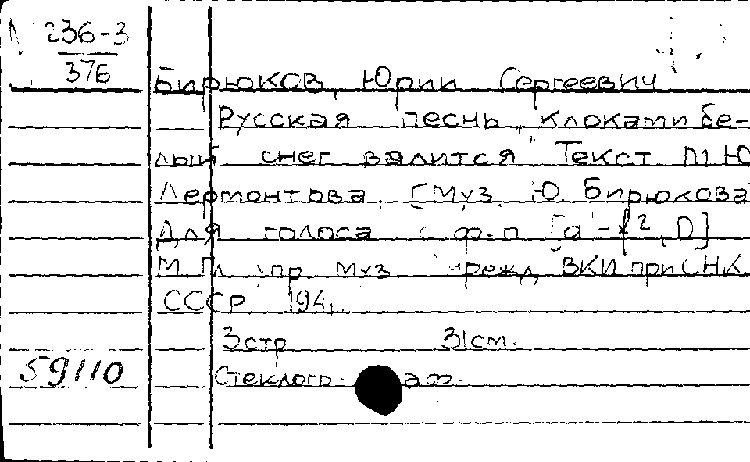 236-3
37б
Бирюков, Юрий Сергеевич
Русская песнь "Клоками бе-
лый снег валится" Текст М Ю
Лермонтова [Муз. Ю. Бирюкова
Для голоса с ф.-п [a - f², D]
М. Гл упр. муз учрежд ВКИ при СНК
СССР 194
3 стр 31 см.
59110
Стеклогр.